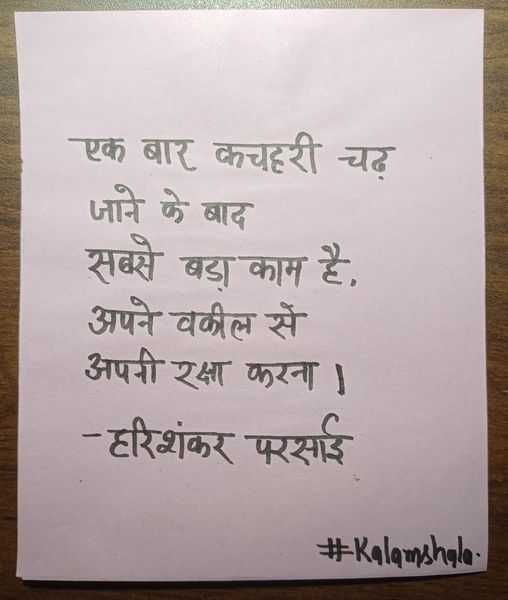 एक बार कचहरी चढ़
जाने के बाद
सबसे बड़ा काम है,
अपने वकील से
अपनी रक्षा करना।
- हरिशंकर परसाई
#Kalamshala.